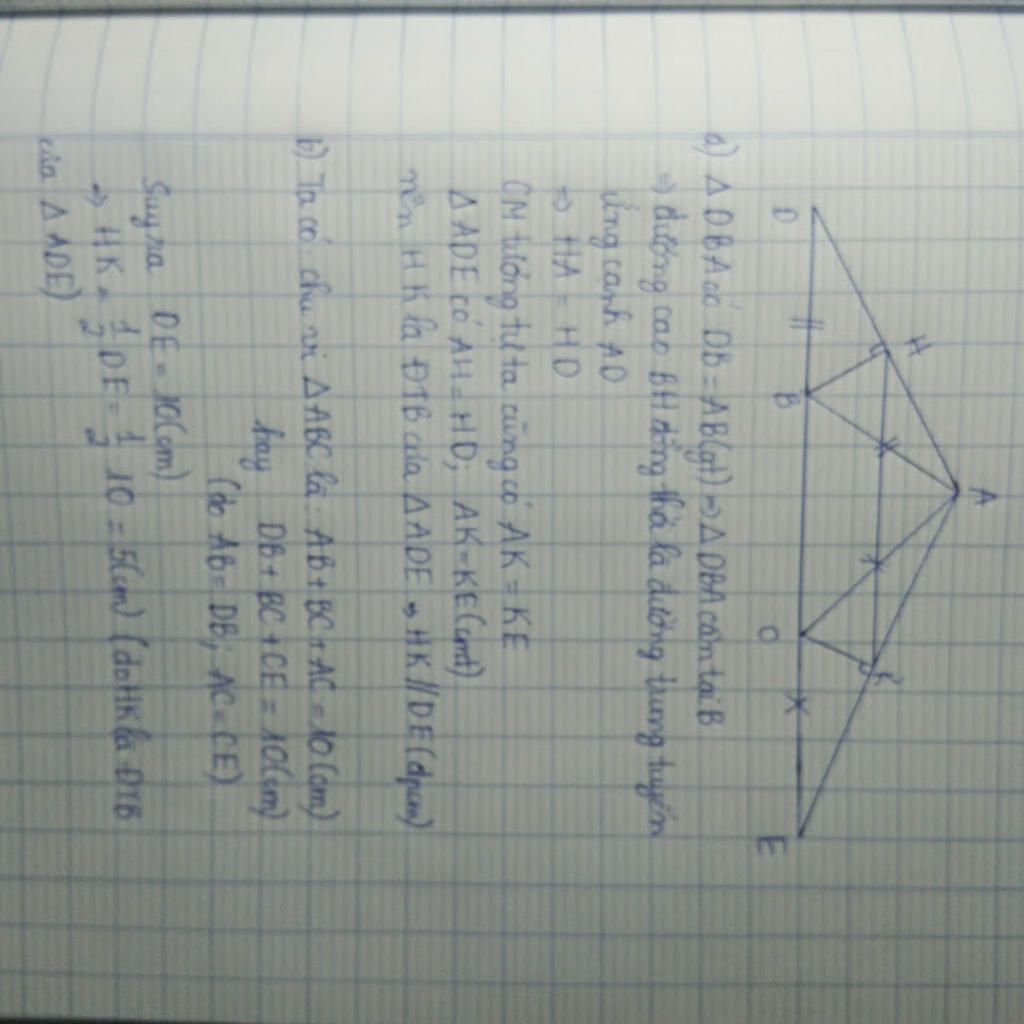 A
H
K
D
B
C
E
a) Δ DBA có DB = AB (gt) ⇒ Δ DBA cân tại B
⇒ đường cao BH đồng thời là đường trung tuyến
ứng cạnh AD
⇒ HA = HD
CM tương tự ta cũng có AK = KE
Δ ADE có AH = HD; AK = KE (cmt)
nên HK là ĐTB của Δ ADE ⇒ HK // DE (đpcm)
b) Ta có: chu vi Δ ABC là: AB + BC + AC = 10 (cm)
hay DB + BC + CE = 10 (cm)
(do AB = DB; AC = CE)
Suy ra DE = 10 (cm)
⇒ HK = 1/2 DE = 1/2 10 = 5 (cm) (do HK là ĐTB
của Δ ADE)